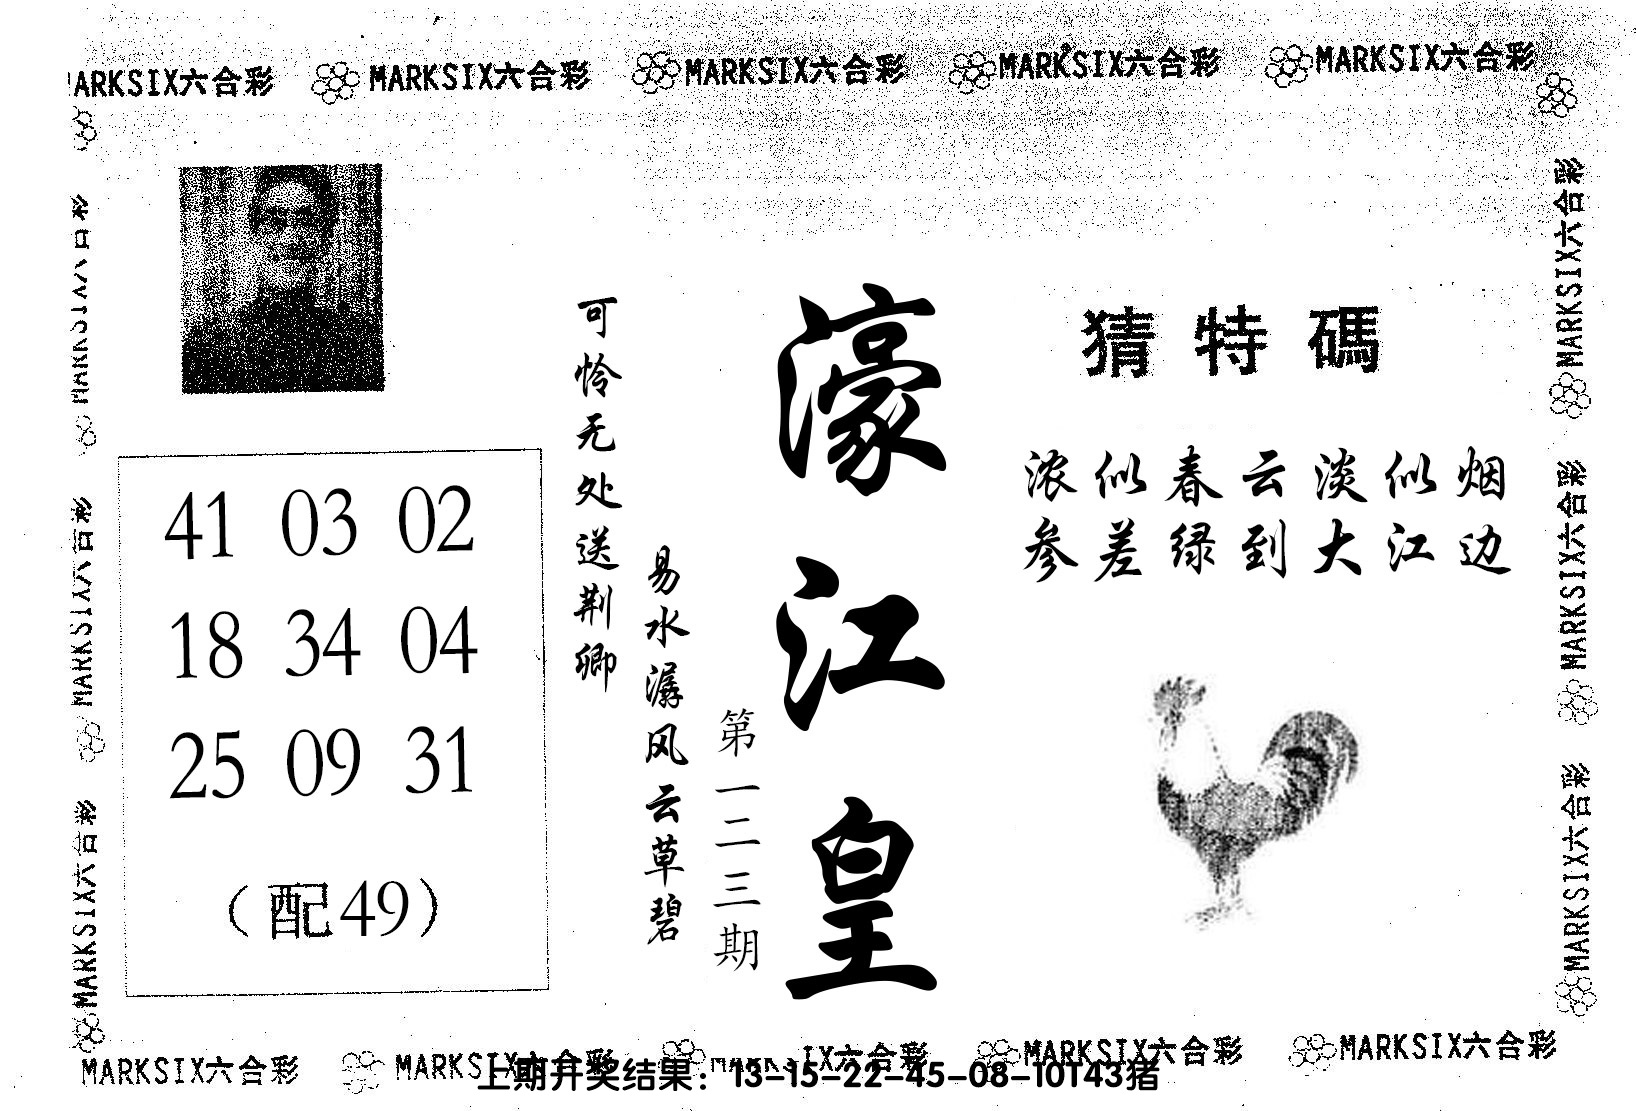 MARKSIX六合彩 MARKSIX六合彩 MARKSIX六合彩 MARKSIX六合彩 MARKSIX六合彩
猜特碼
浓似春云淡似烟
参差绿到大江边
濠江皇
第一二三期
易水潺风云草碧
可怜无处送荆卿
41 03 02
18 34 04
25 09 31
（配49）
MARKSIX六合彩
MARKSIX六合彩
MARKSIX六合彩
MARKSIX六合彩
MARKSIX六合彩
MARKSIX六合彩
MARKSIX六合彩 MARKSIX六合彩 MARKSIX六合彩 MARKSIX六合彩 MARKSIX六合彩
上期开奖结果：13-15-22-45-08-10T43猪